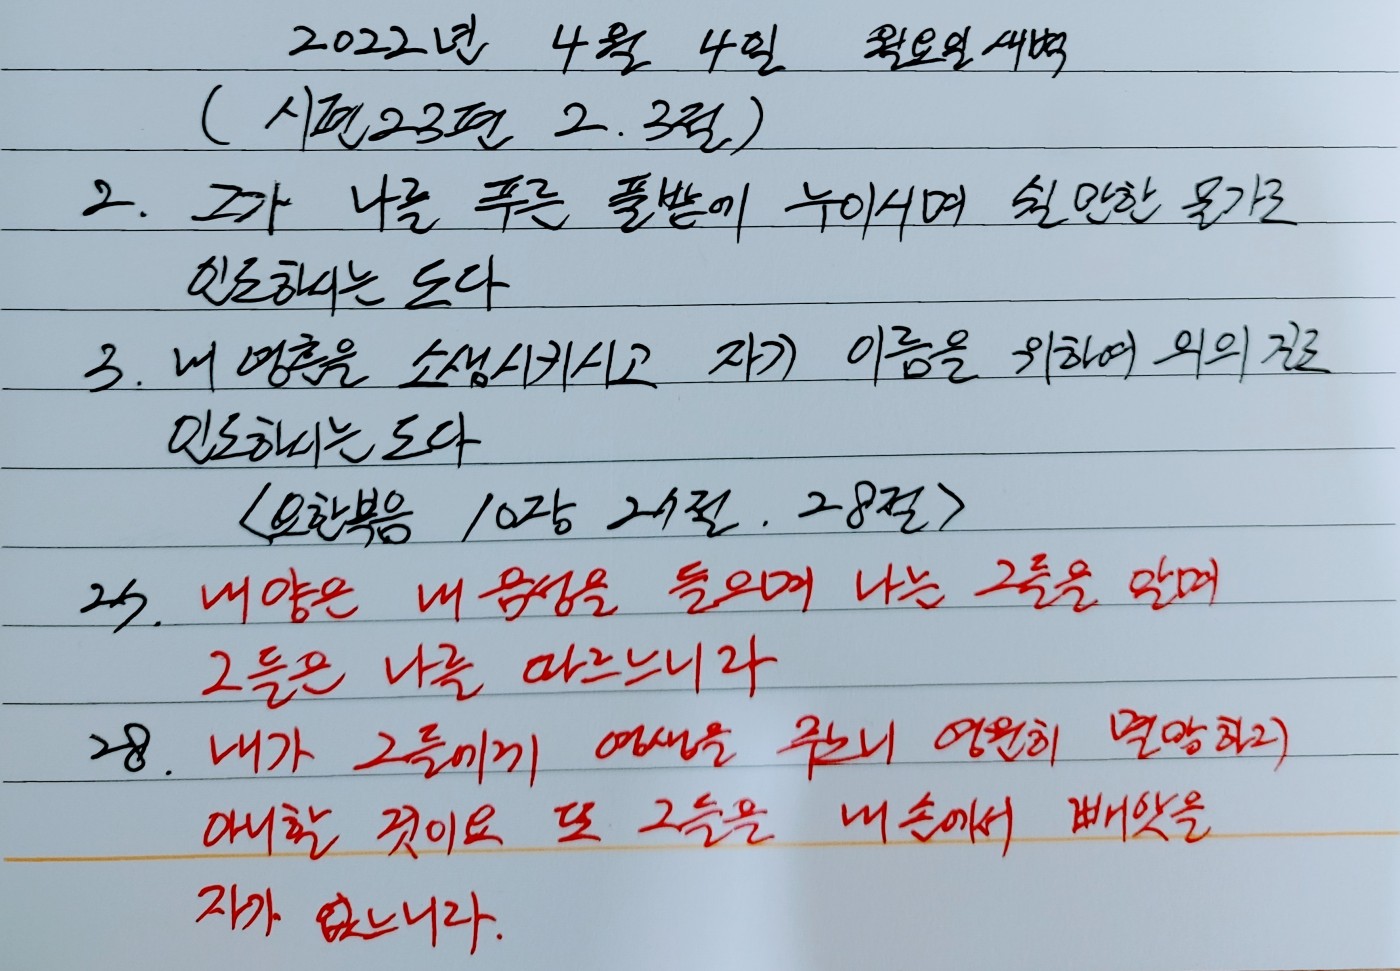 2022년 4월 4일 월요일새벽
(시편23편 2. 3절)
2. 그가 나를 푸른 풀밭에 누이시며 쉴만한 물가로
인도하시는 도다
3. 내 영혼을 소생시키시고 자기 이름을 위하여 의의 길로
인도하시는 도다
<요한복음 10장 27절. 28절>
27. 내 양은 내 음성을 들으며 나는 그들을 알며
그들은 나를 따르느니라
28. 내가 그들에게 영생을 주노니 영원히 멸망하리
아니할 것이요 또 그들을 내 손에서 빼앗을
자가 없느니라.